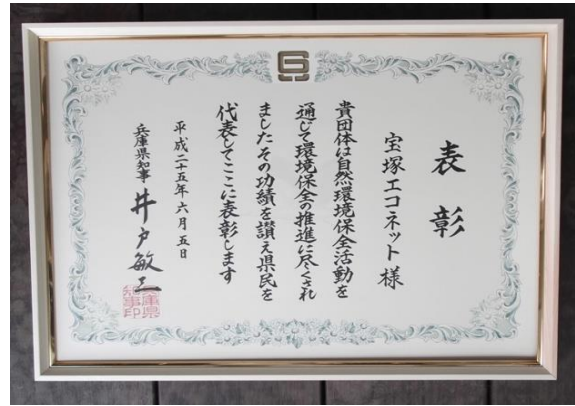 表彰
宝塚エコネット様
貴団体は自然環境保全活動を
通じて環境保全の推進に尽くされ
ましたその功績を讃え県民を
代表してここに表彰します
平成二十五年六月五日
兵庫県知事 井戸敏三
兵庫県知事印